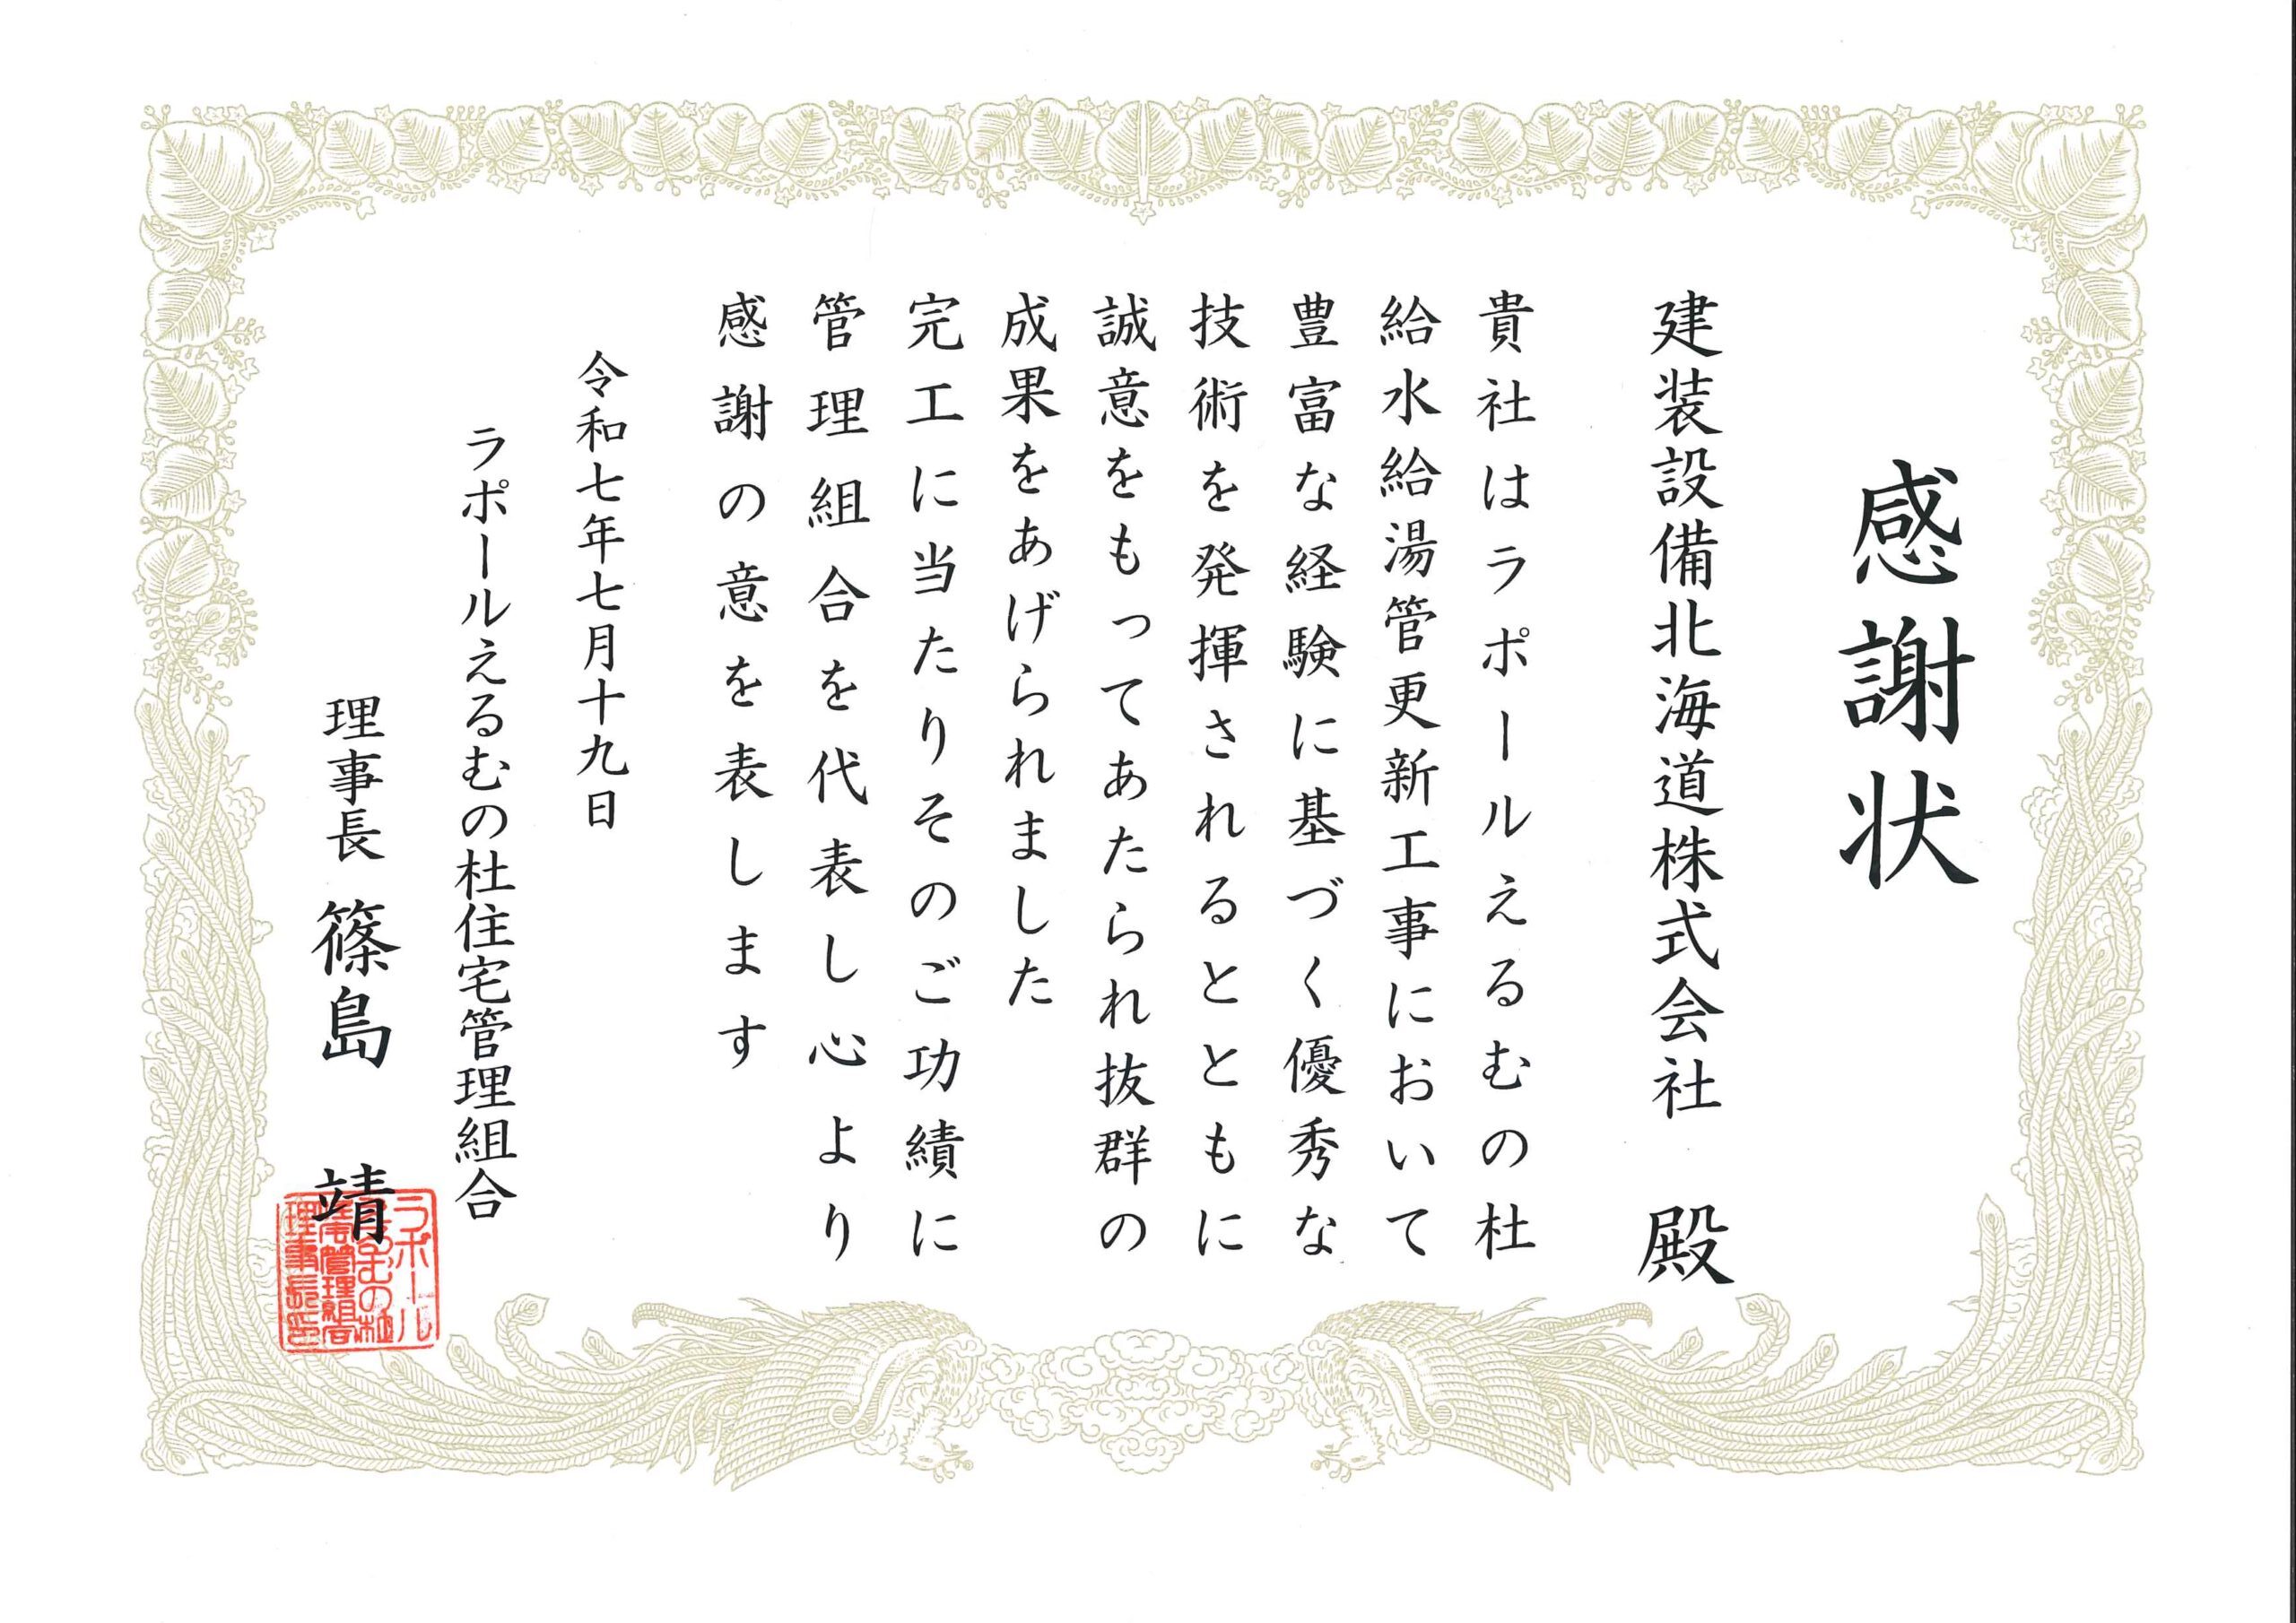 感謝状
建装設備北海道株式会社 殿
貴社はラポールえるむの杜
給水給湯管更新工事において
豊富な経験に基づく優秀な
技術を発揮されるとともに
誠意をもってあたられ抜群の
成果をあげられました
完工に当たりそのご功績に
管理組合を代表し心より
感謝の意を表します
令和七年七月十九日
ラポールえるむの杜住宅管理組合
理事長 篠島 靖
ラポール
えるむの杜
住宅管理組合
理事長印